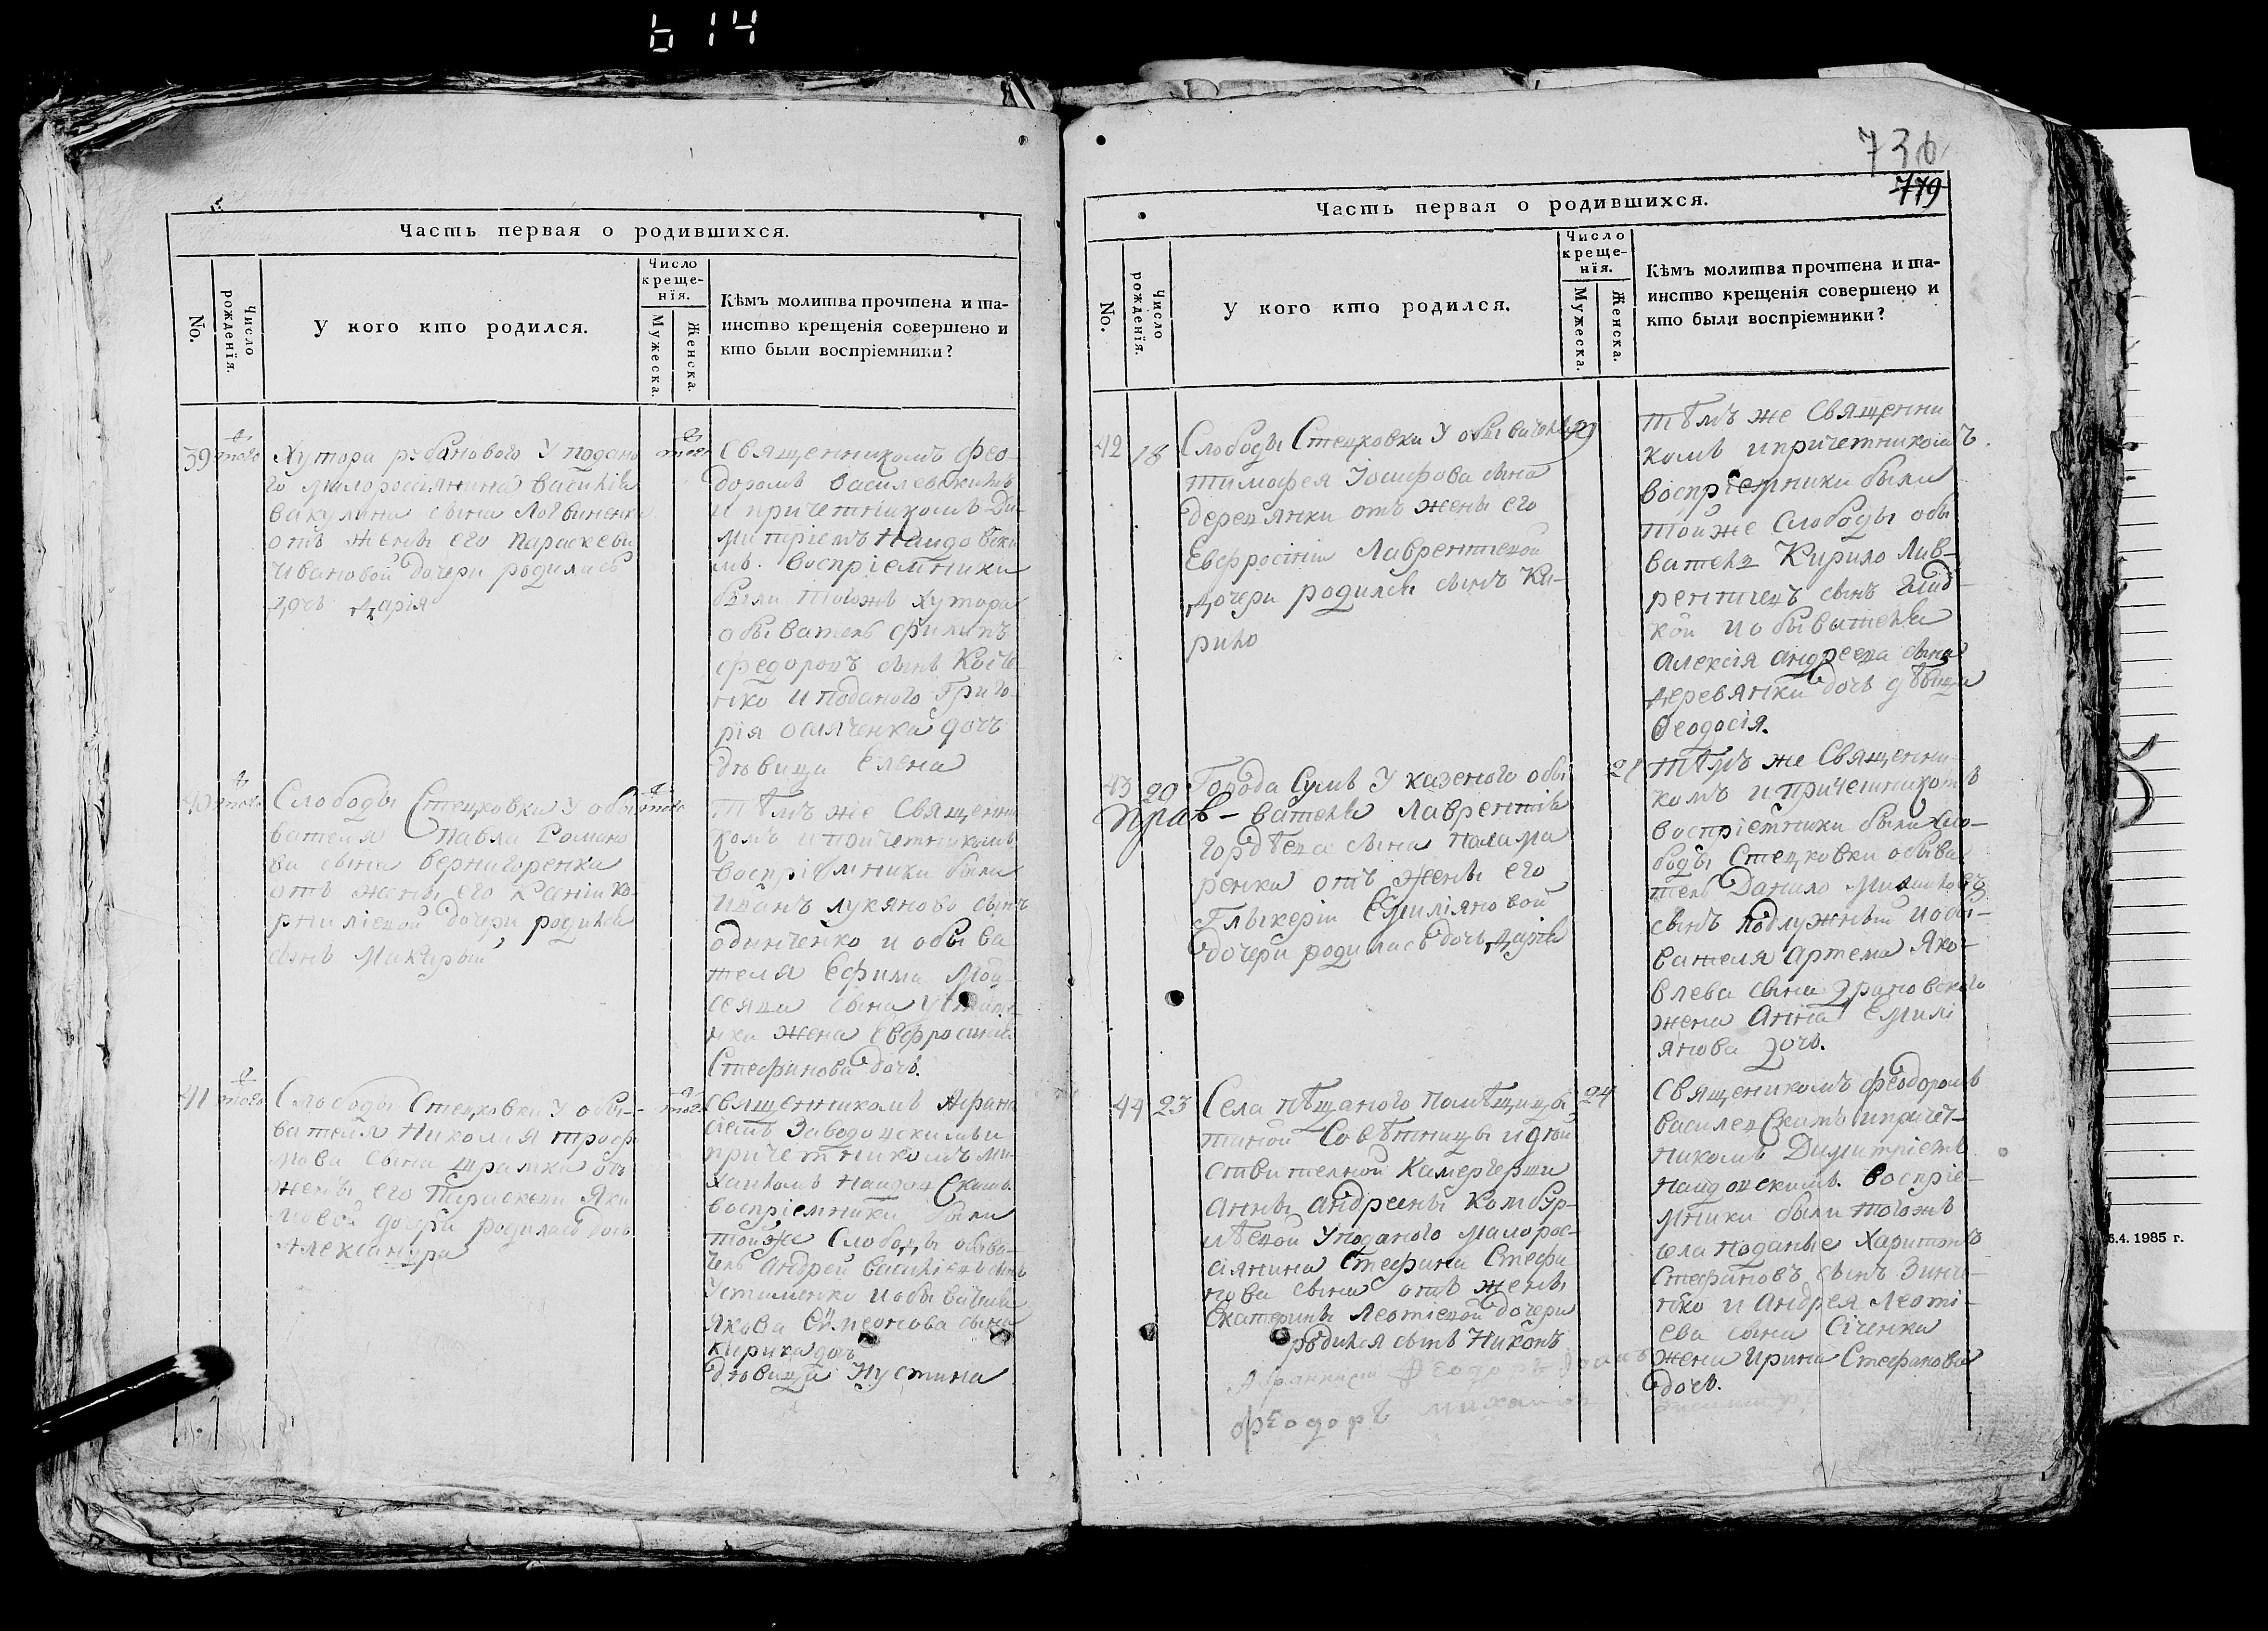 614
Часть первая о родившихся.
No.
Число рожденія.
У кого кто родился.
Число
креще-
нія.
Мужеска.
Женска.
Кѣмъ молитва прочтена и та-
инство крещенія совершено и
кто были воспріемники?
39 того
Хутора рубанового У подано
го малороссіянина василія
вакулина сына Логвиненка
отъ жены его параскевы
Ивановой дочери родилась
дочь Дарія
того
Священникомъ Фео-
доромъ василевскимъ
и причетникомъ Ди-
митріемъ Наидовски
мъ. воспріемники
были тогожъ хутора
обыватель филипъ
федоровъ сынъ
нко и поданого Григо
рія дочь
дѣвица Елена
40 того
Слободы Стецковки У обы
вателя Павла Романо
ва сына вернигоренка
отъ жены его Ксеніи ко-
рниліевой дочери родился
сынъ Макарый
того
тѣмъ же Священни
комъ и причетникомъ
воспріемники были
Иванъ лукяновъ сынъ
одинченко и обыва
теля Ефима Мои
сеева сына
нка жена Евфросинія
Стефанова дочь.
41 того
Слободы Стецковки У обы-
вателя Николая трофи
мова сына отъ
жены его Параскеви Яки
мовой дочери родилась дочь
Александра
того
священникомъ Афана
сіемъ Заводовскимъ и
причетникомъ ми
хаиломъ Наидовскимъ.
воспріемники были
тойже Слободы обыва-
тель андрей василіевъ сынъ
Устименко и обывателя
якова Симеонова сына
кирика дочь
дѣвица Иустина
736
779
Часть первая о родившихся.
No.
Число рожденія.
У кого кто родился.
Число
креще-
нія.
Мужеска.
Женска.
Кѣмъ молитва прочтена и та-
инство крещенія совершено и
кто были воспріемники?
42 18
Слободы Стецковки У обывателя
тимофея Іосифова сына
деревянки отъ жены его
Евфросініи Лаврентіевой
дочери родился сынъ Ки-
рило
19
тѣмъ же Священни
комъ и причетникомъ.
воспріемники были
тойже Слободы обы
ватель Кирило Лав-
рентіевъ сынъ Глад
кой и обывателя
алексія андреева сына
деревянки дочь дѣвица
Феодосія.
43 20
Города Сумъ У казеного обы
вателя Лаврентія
гордѣева сына палама
ренка отъ жены его
Глыкеріи Емиліяновой
дочери родилась дочь Дарія
21
тѣмъ же Священни-
комъ и причетникомъ
воспріемники были сло-
боды Стецковки обыва
тель Данило
сынъ Подлужный и обы-
вателя артема Яко-
влева сына
жена Анна Емилі
янова дочь.
44 23
Села пѣщаного помѣщицы
таной Совѣтницы и дѣй
ствителной Камергерши
анны андреевны Комбур-
лѣевой У поданого малорос-
сіянина Стефана Стефа
нова сына отъ жены
Екатерины Леонтіевой дочери
родился сынъ Никонъ
24
Священикомъ феодоромъ
василевскимъ и причет-
никомъ Димитріемъ
наидовскимъ. воспріе-
мники были тогожъ
села поданые Харитонъ
Стефановъ сынъ Зинче-
нко и андрея Леонті-
ева сына Січенка
жена Ирина Стефанова
дочь.
феодоръ